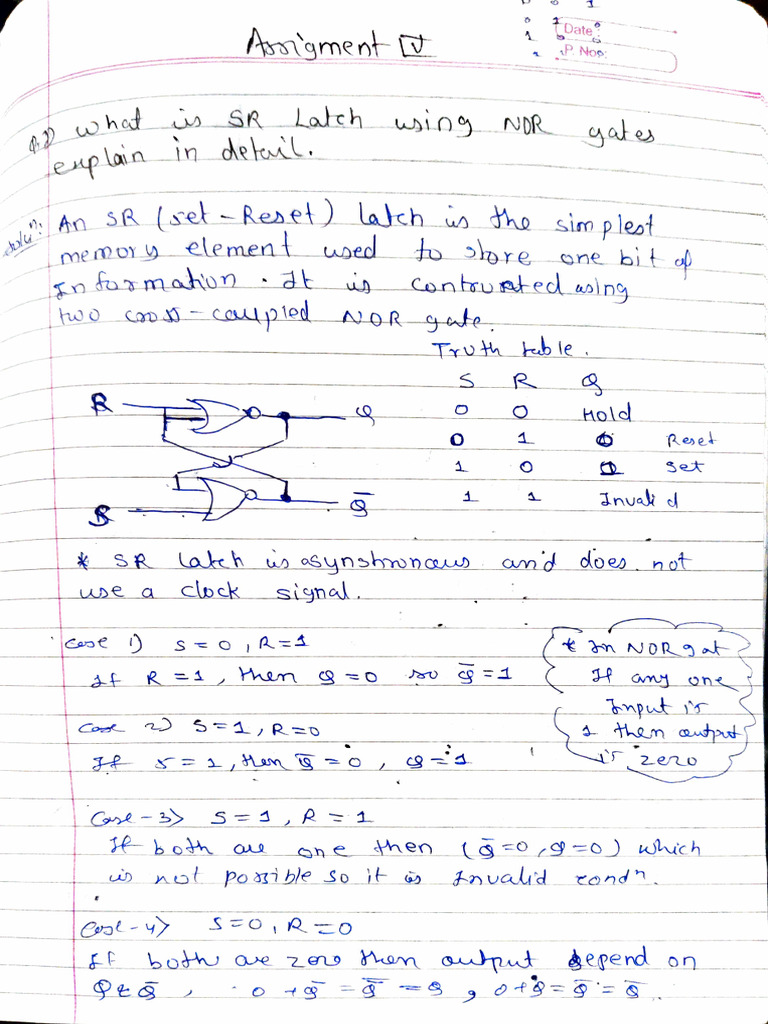 Assigment IV
Date:
P. No:
Q.1) What is SR Latch using NOR gates
explain in detail.
Soluⁿ: An SR (set-Reset) latch is the simplest
memory element used to store one bit of
Information. It is contructed using
two cross-coupled NOR gate.
Truth table.
S R Q
0 0 Hold
0 1 0 Reset
1 0 1 Set
1 1 Invalid
R Q
S Q̅
* SR latch is asynshronous and does not
use a clock signal.
Case 1) S=0, R=1
If R=1, then Q=0 so Q̅=1
* In NOR gat
If any one
Input is
1 then output
is zero
Case 2) S=1, R=0
If S=1, then Q̅=0, Q=1
Case-3) S=1, R=1
If both are one then (Q̅=0, Q=0) which
is not possible so it is Invalid condⁿ.
Case-4) S=0, R=0
If both are zero then output depend on
Q & Q̅,